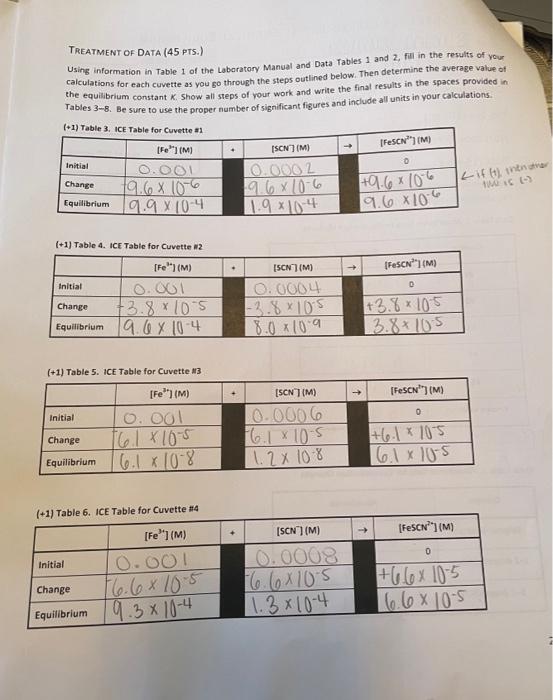 TREATMENT OF DATA (45 PTS.)
Using information in Table 1 of the Laboratory Manual and Data Tables 1 and 2, fill in the results of your
calculations for each cuvette as you go through the steps outlined below. Then determine the average value of
the equilibrium constant K. Show all steps of your work and write the final results in the spaces provided in
Tables 3-8. Be sure to use the proper number of significant figures and include all units in your calculations.
(+1) Table 3. ICE Table for Cuvette #1
[Fe³⁺] (M) + [SCN⁻] (M) → [FeSCN²⁺] (M)
Initial 0.001 0.0002 0
Change -9.6 x 10-6 -9.6 x 10-6 +9.6 x 10-6 ← if (+), then other
Equilibrium 9.9 x 10-4 1.9 x 10-4 9.6 x 10-6 is (-)
(+1) Table 4. ICE Table for Cuvette #2
[Fe³⁺] (M) + [SCN⁻] (M) → [FeSCN²⁺] (M)
Initial 0.001 0.0004 0
Change -3.8 x 10-5 -3.8 x 10-5 +3.8 x 10-5
Equilibrium 9.6 x 10-4 8.0 x 10-9 3.8 x 10-5
(+1) Table 5. ICE Table for Cuvette #3
[Fe³⁺] (M) + [SCN⁻] (M) → [FeSCN²⁺] (M)
Initial 0.001 0.0006 0
Change -6.1 x 10-5 -6.1 x 10-5 +6.1 x 10-5
Equilibrium 6.1 x 10-8 1.2 x 10-8 6.1 x 10-5
(+1) Table 6. ICE Table for Cuvette #4
[Fe³⁺] (M) + [SCN⁻] (M) → [FeSCN²⁺] (M)
Initial 0.001 0.0008 0
Change -6.6 x 10-5 -6.6 x 10-5 +6.6 x 10-5
Equilibrium 9.3 x 10-4 1.3 x 10-4 6.6 x 10-5